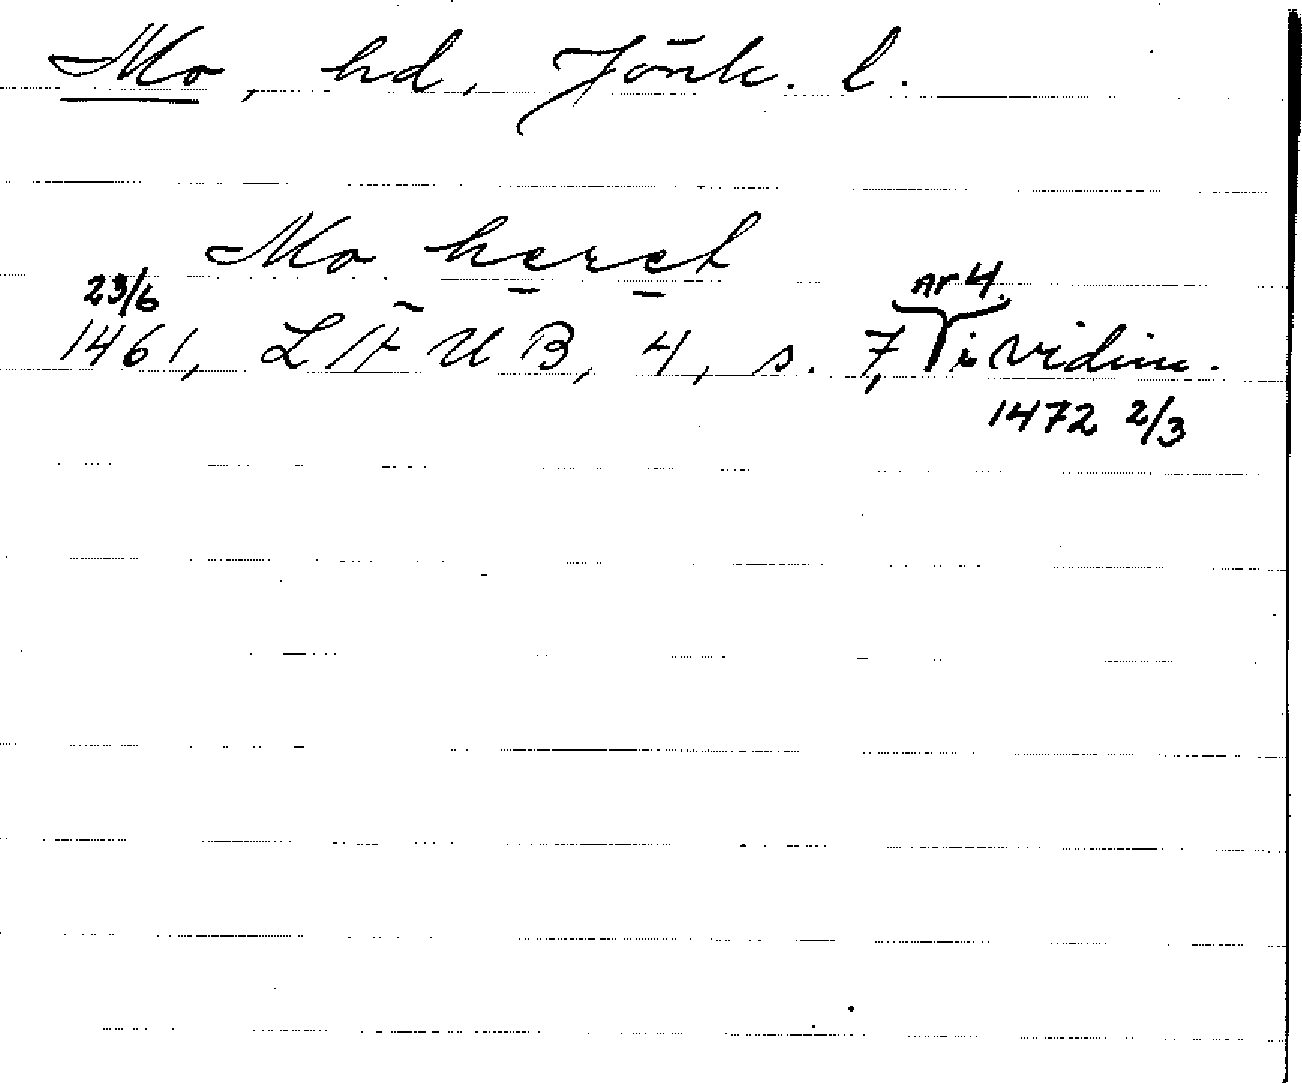 Mo, hd, Jönk. l.
Mo heret
23/6
1461, LÄUB, 4, s. 7, nr 4. i vidim.
1472 2/3